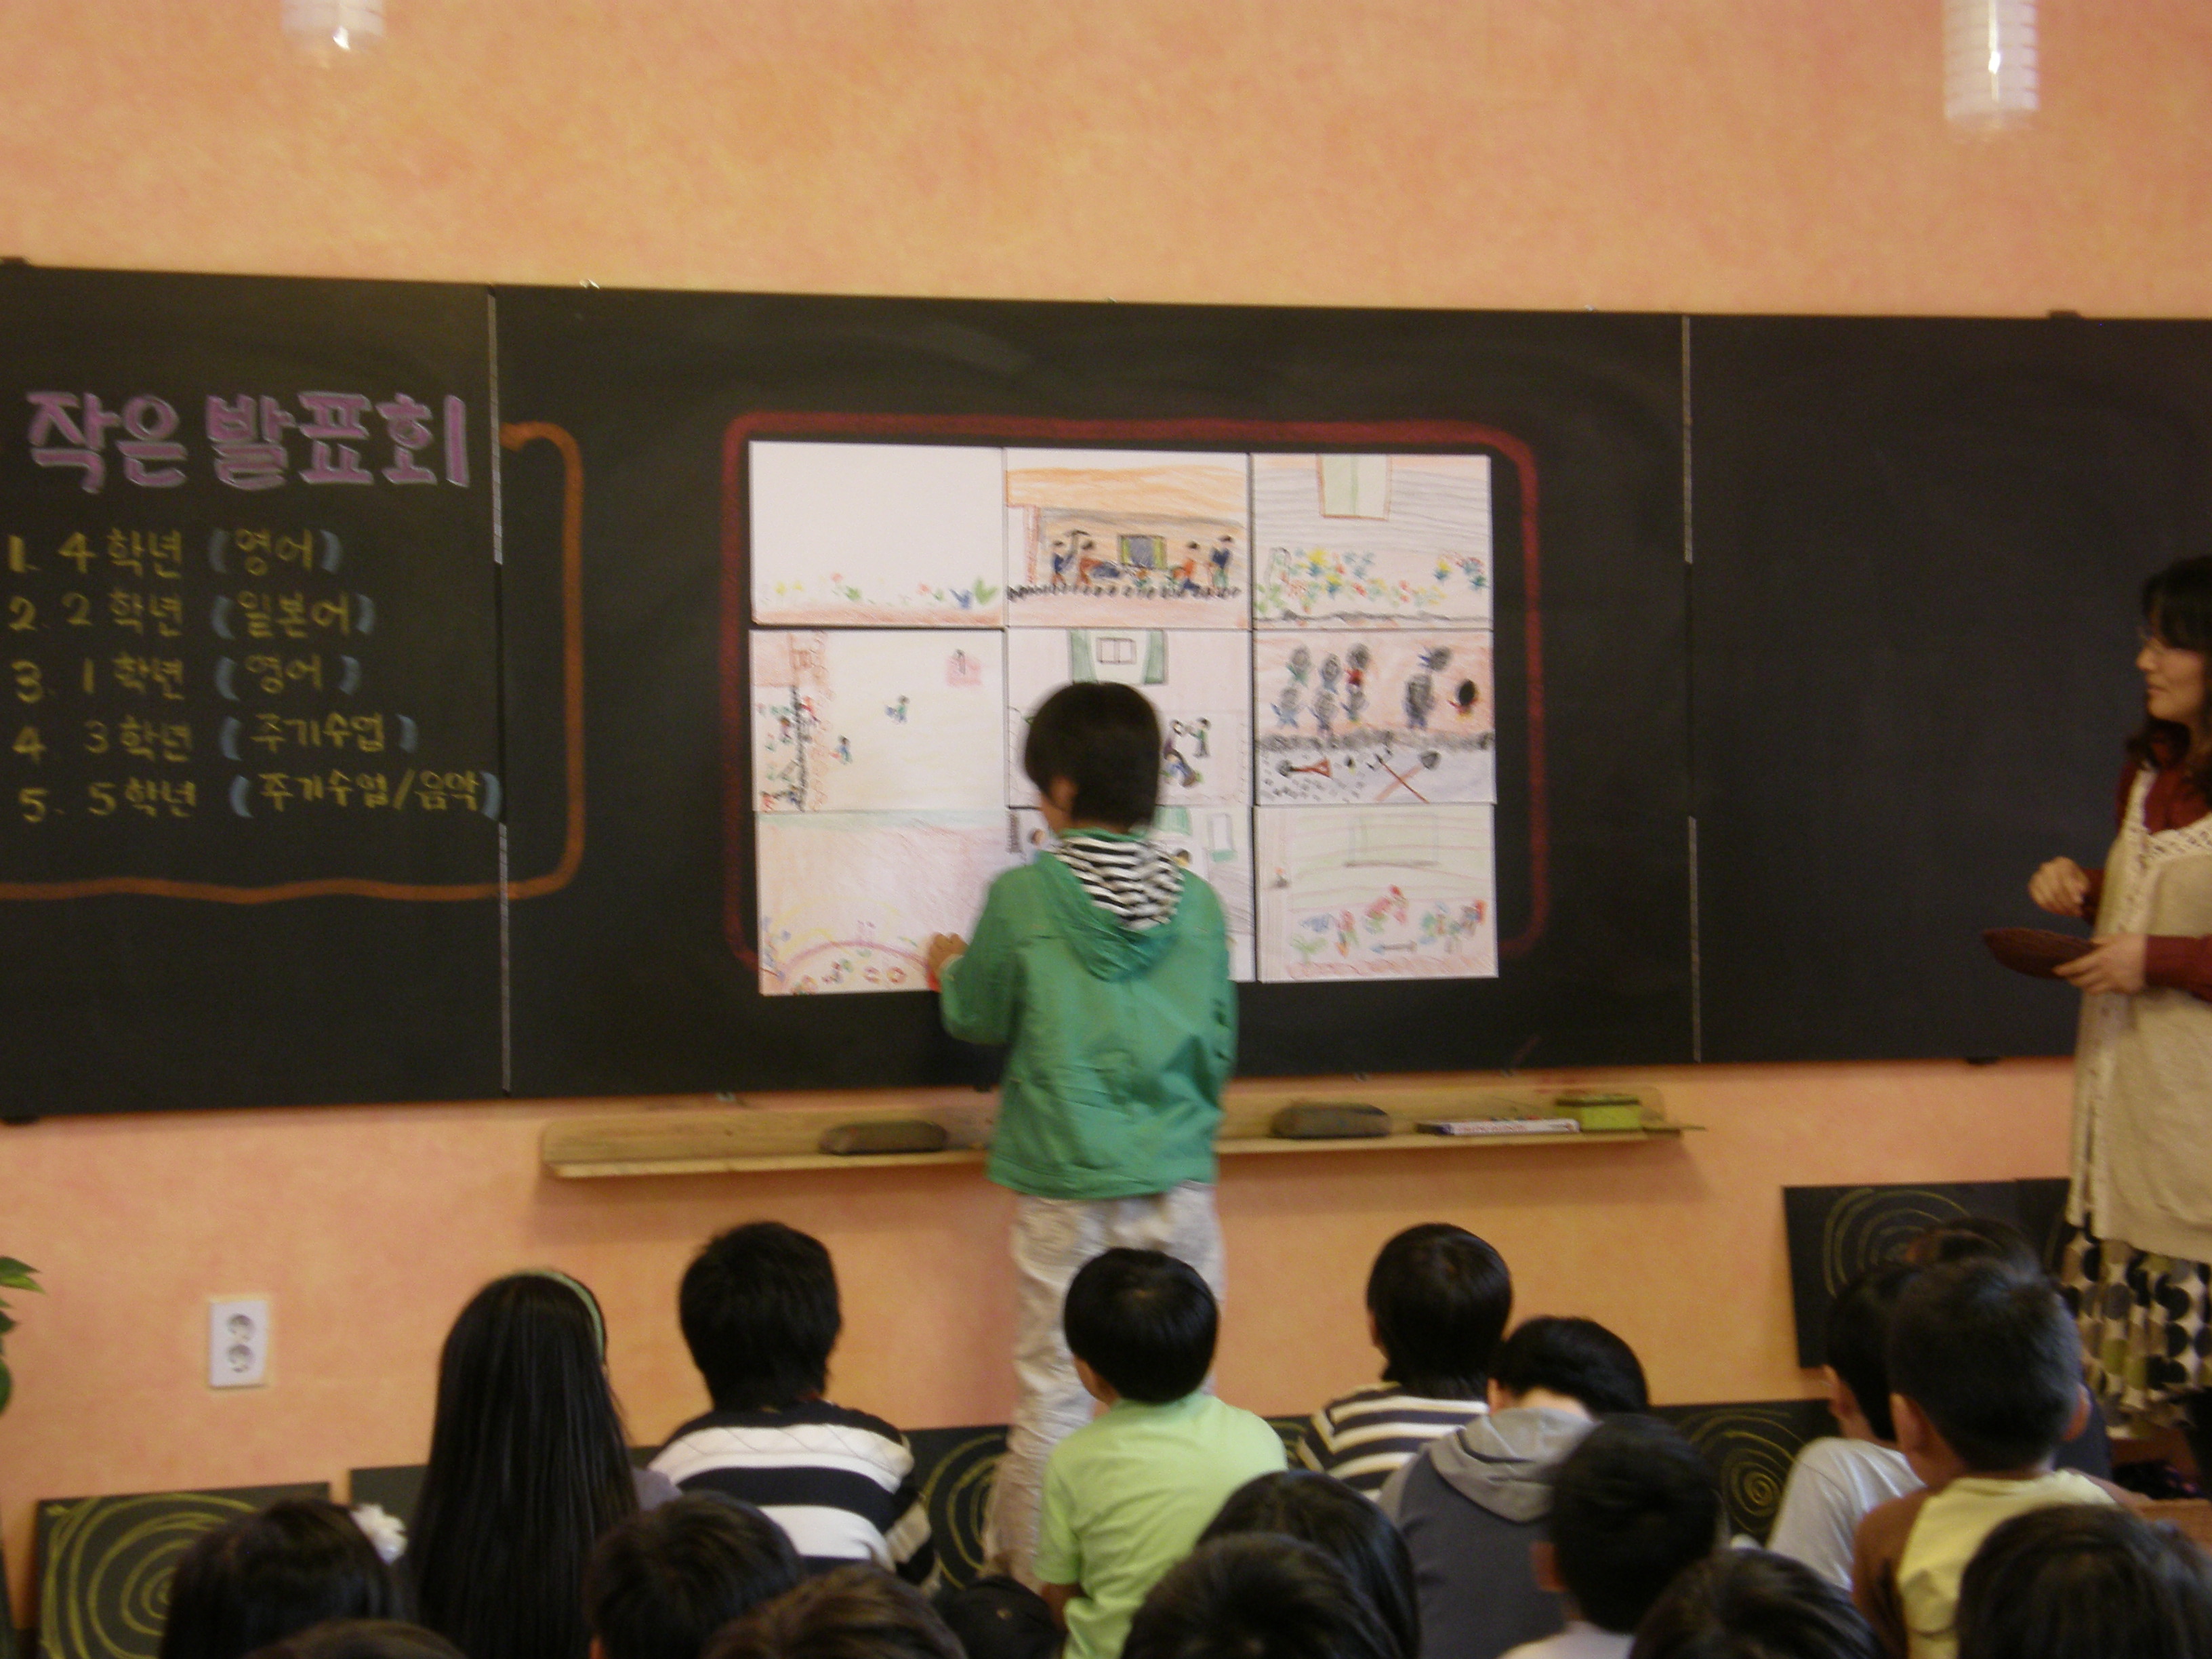 작은 발표회
1. 4학년 (영어)
2. 2학년 (일본어)
3. 1학년 (영어)
4. 3학년 (주기수업)
5. 5학년 (주기수업/음악)